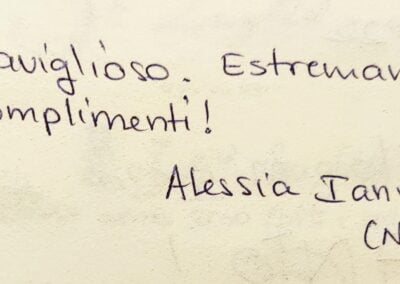 aviglioso. Estremam
omplimenti!
Alessia Iann
(N